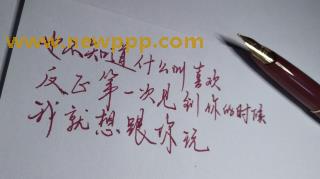 www.newppp.com
也不知道什么叫喜欢
反正第一次见到你的时候
我就想跟你玩